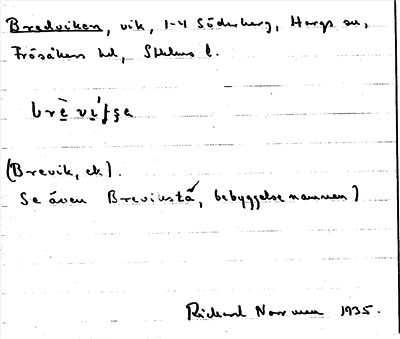 Bredviken, vik, 1-4 Söderberg, Hargs sn,
Frösåkers hd, Sthlms l.
(Brevik, ek).
Se även Breviksstå, bebyggelsenamnen)
Rickard Norrman 1935.